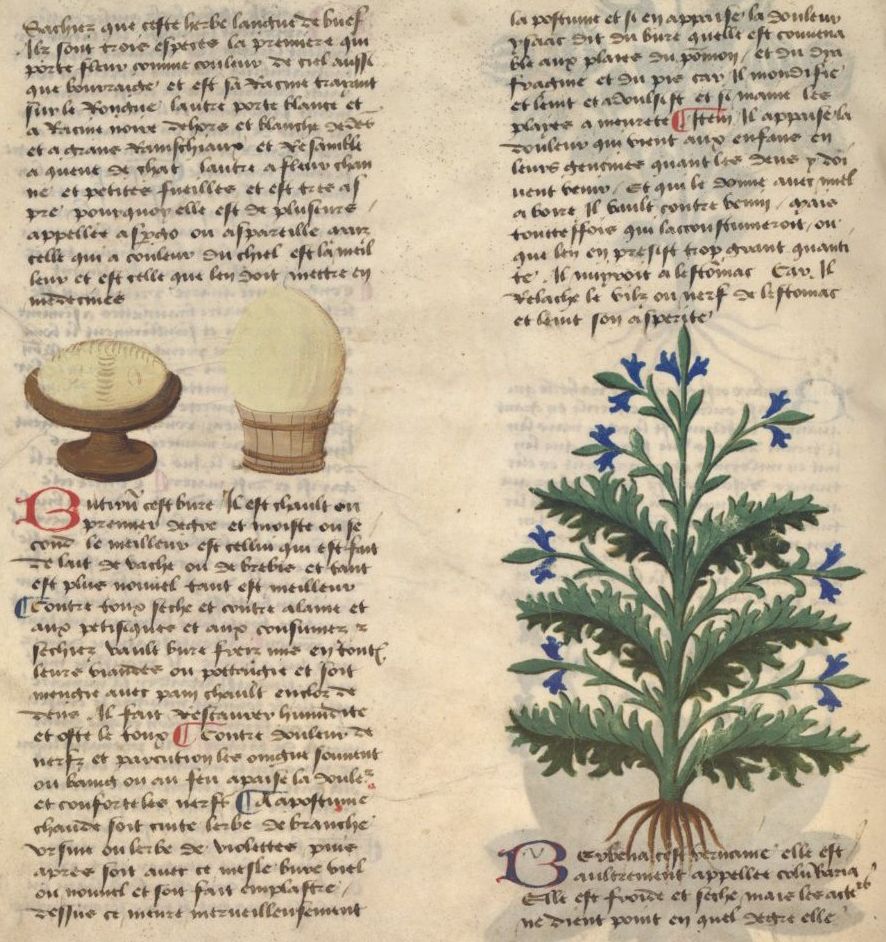 Sachiez que ceste herbe langue de buef
Ilz sont trois especes la premiere qui
porte fleur comme couleur de ciel aussi
que bourraige et est sa Racine trayant
sur le Rougue lautre porte blance et
a Racine noire dehors et blanche dedes
et a grans Rainschiaux et Resamble
a queue de chat lautre a fleur chan
ne et petites fueilles et est tres as
pre pourquoy elle est de plusieurs
appellee aspgo ou aspareille mair
celle qui a couleur du chiel est la meil
leur et est celle que len doit mettre en
medecines
Butirū cest bure Il est chault ou
premier degre et moiste ou se
cond le meilleur est cellui qui est fait
de lait de vache ou de brebis et tant
est plus nouuel tant est meilleur
Contre toux seche et contre alaine et
aux petisiques et aux consumez z
sechiez vault bure frez mis en toutes
leurs viandes ou pottaigie et soit
mengie auec pain chault enclos de
dens . Il fait Restaurer humidite
et oste le toux Contre douleur de
nerfz et parcution les oingne souuent
ou baing ou au feu apaise la doule
et conforte les nerfz A apostume
chaude soit cuite lerbe de branche
vrsine ou lerbe de violettes puis
apres soit auec ce mesle bure viel
ou nouuel et soit fait emplastre
dessus ce meure merueilleusement
la postume et si en appaise la douleur
ysaac dit du bure quelle est conuena
ble aux plaies du pōmon / et du dya
fragme et du pis car Il mondifie
et leuit et adoulsist et si maine les
playes a meurete Item Il appaise la
douleur qui vient aux enfans en
leurs gencines quant les dens y doi
uent venir / Et qui le donne auec miel
a boire Il vault contre venin / Mais
touttesfois qui lacoustumeroit / ou
que len en presist trop grant quanti
te . Il nuyroit a lestomac Car Il
Relache le vilz ou nerf de lestomac
et leuit son asperite
Verbena cest veruaine elle est
aultrement appellee colūbaria
Elle est froide et seche / mais les acte
ne dient point en quel degre elle